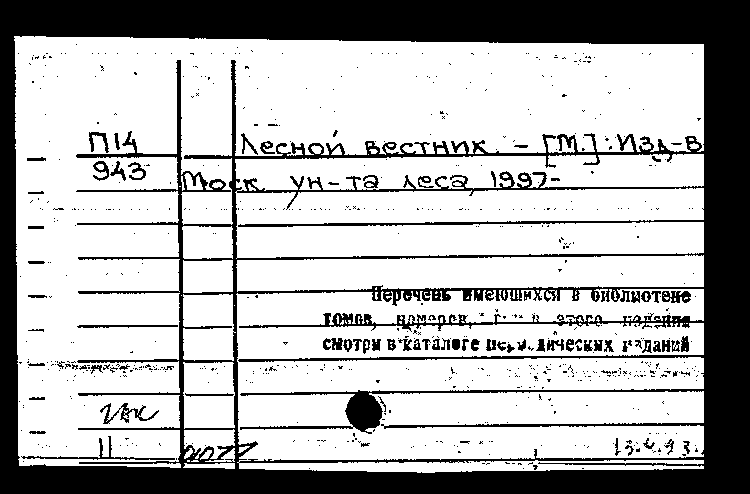 П14 Лесной вестник. - [М.]: Изд-в
943 Моск. ун-та леса, 1997-
Перечень имеющихся в библиотеке
томов, номеров, этого издания
смотри в каталоге периодических изданий
11